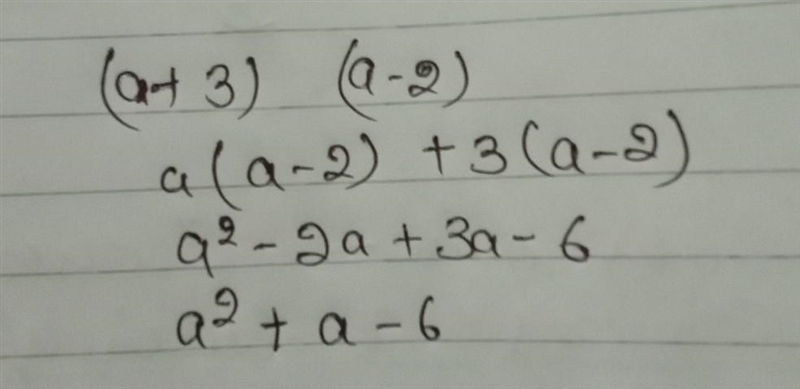 (a+ 3) (a-2)
a(a-2) +3(a-2)
a² - 2a + 3a - 6
a² + a - 6